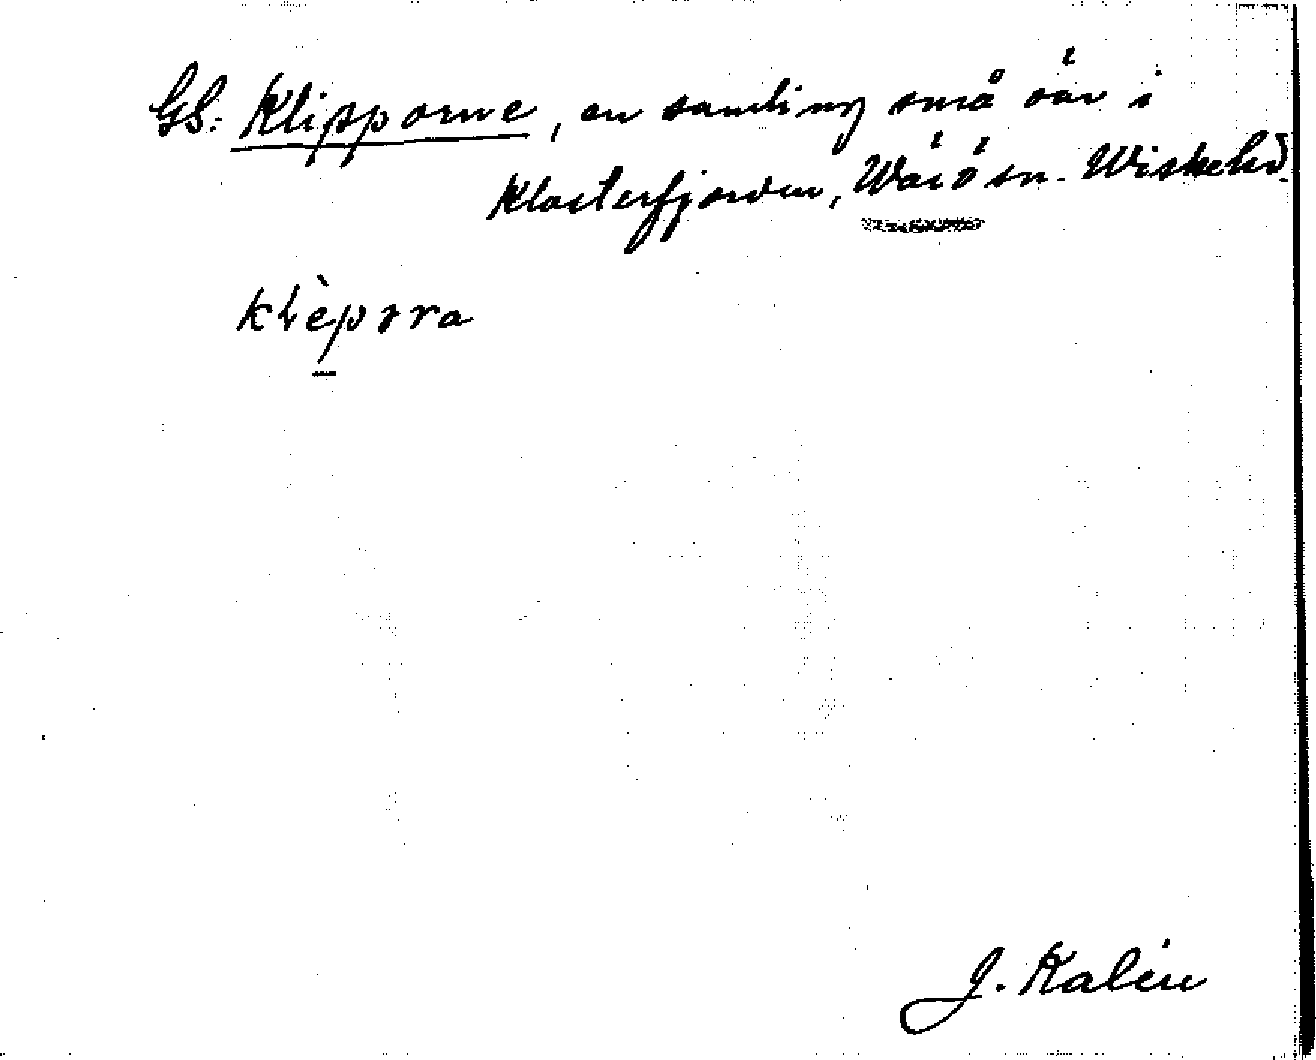 GS: Klipporne, en samling små öar i
Klosterfjorden, Wärö sn. Wiske hd.
klèpora
J. Kalén